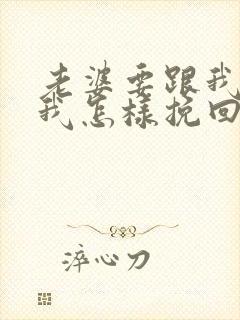 老婆要跟我
我怎样挽回
淬心刀